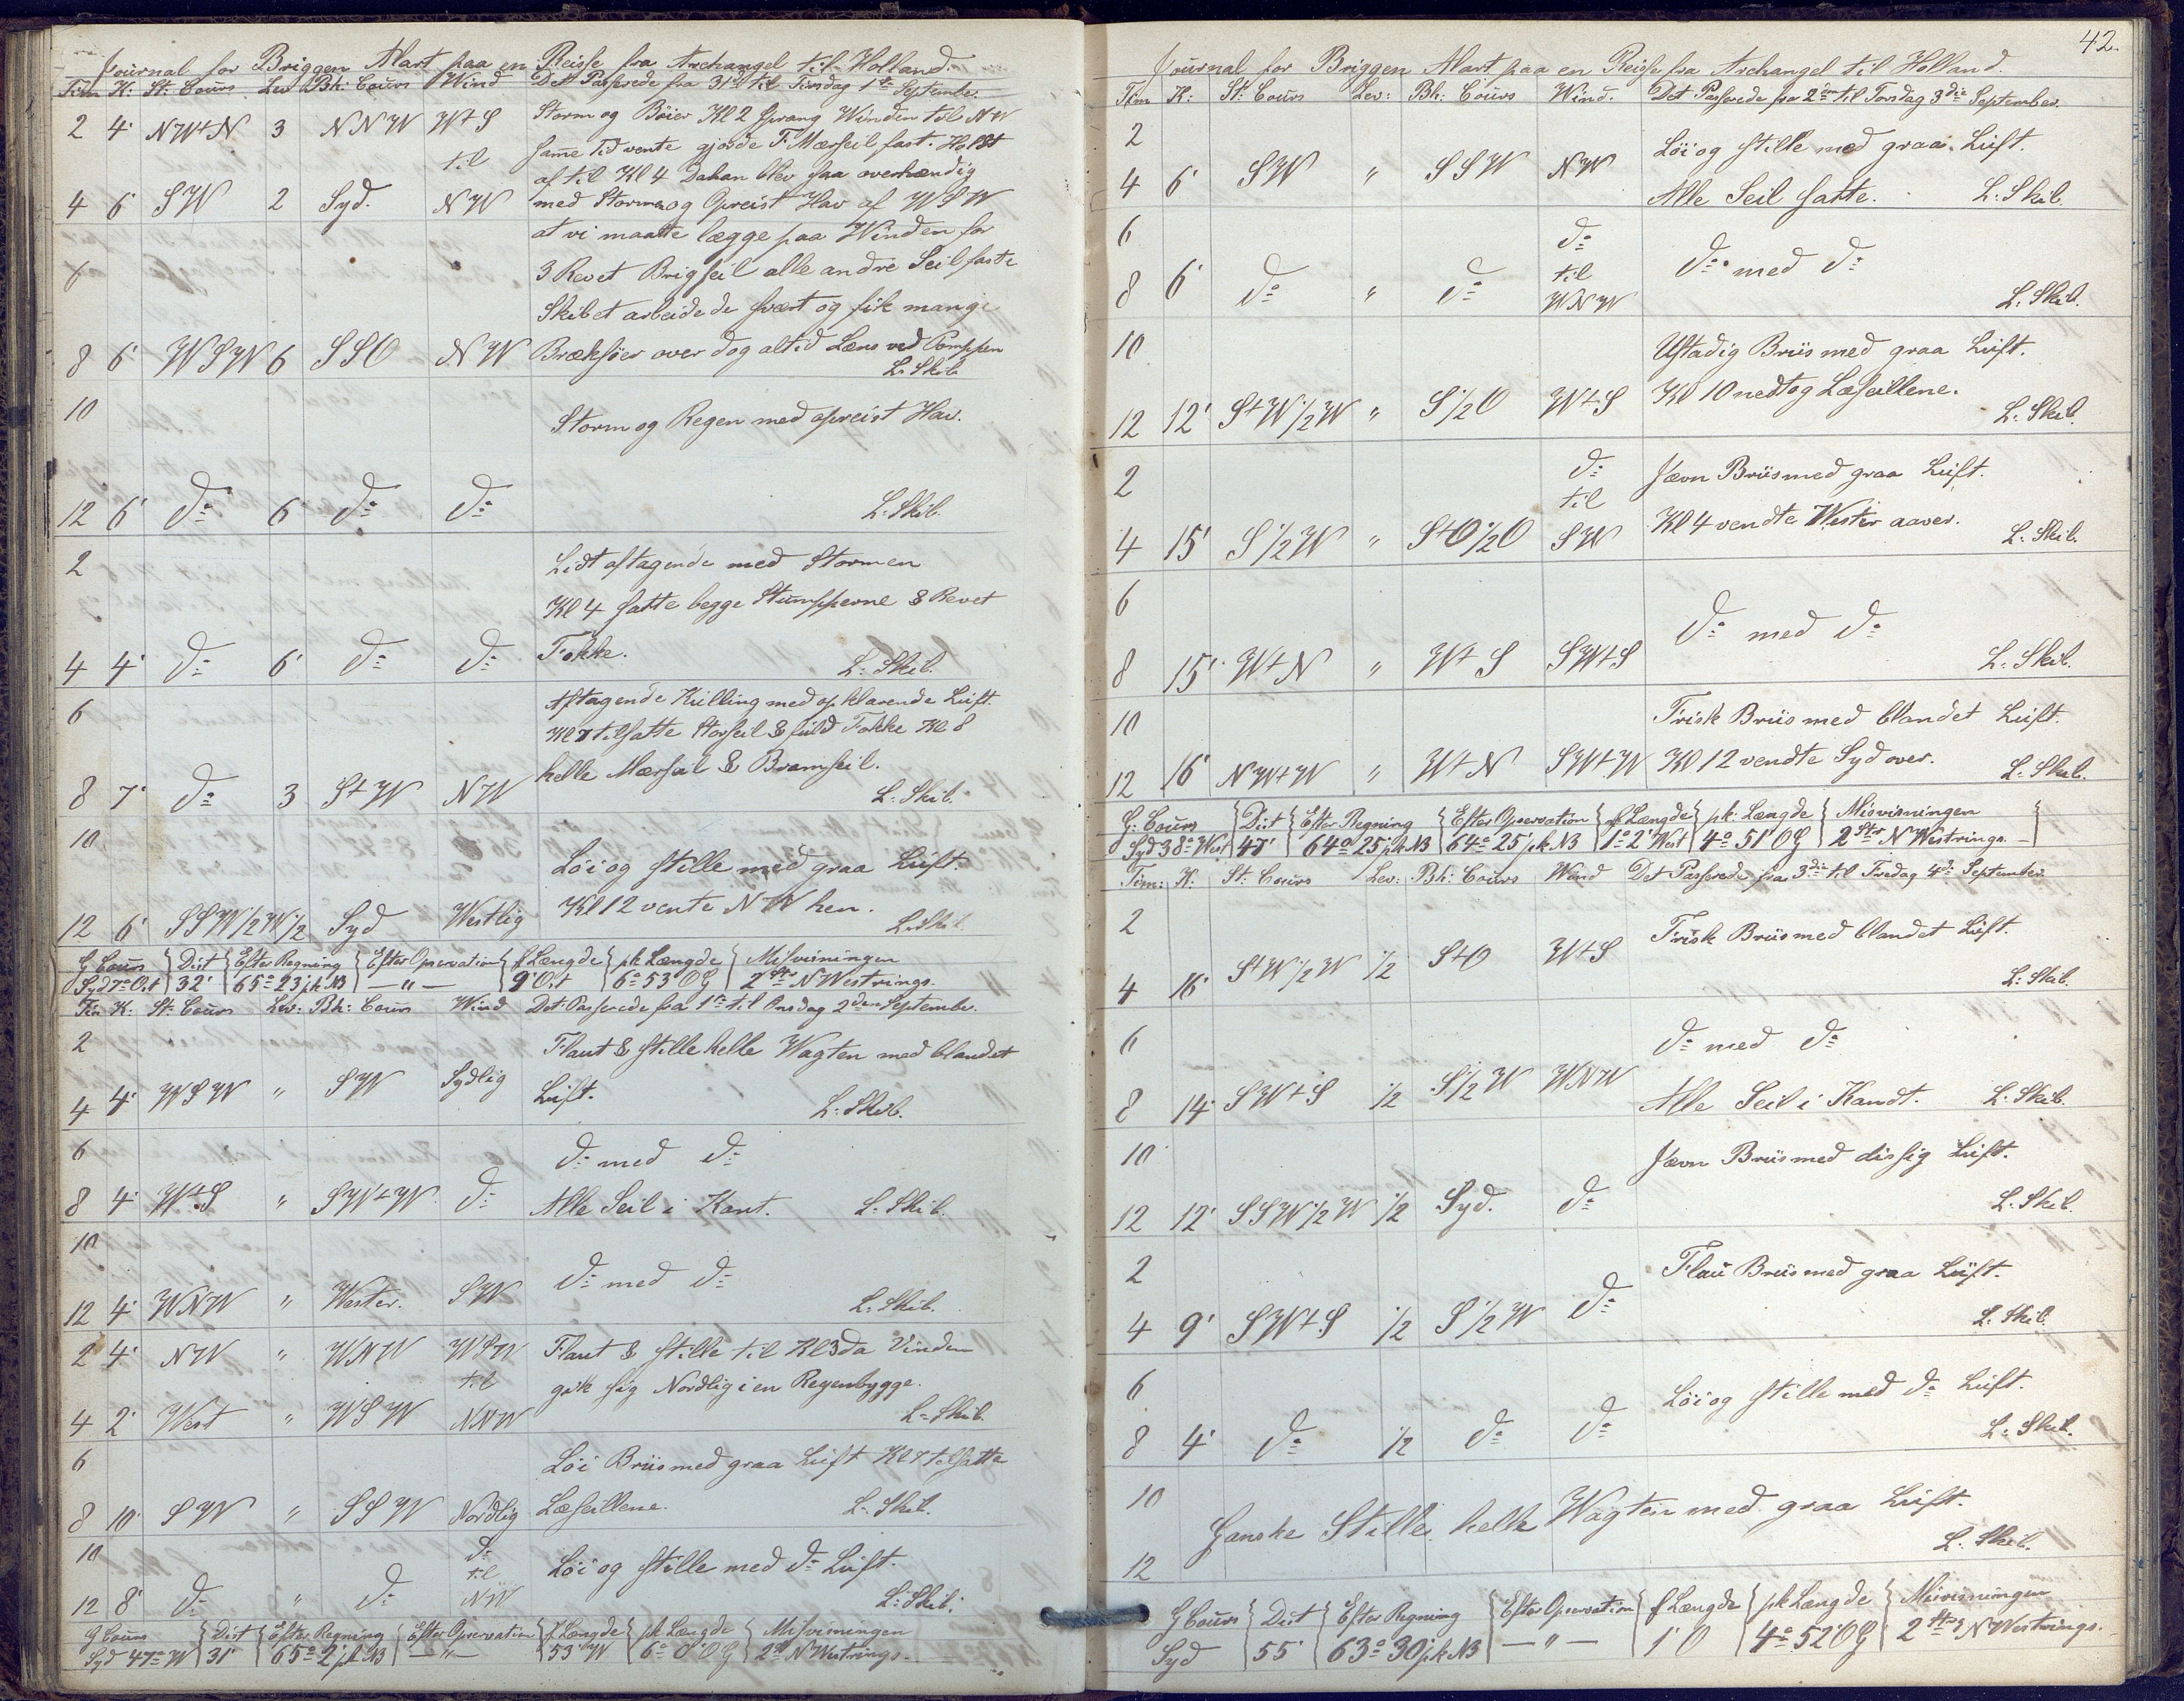 Journal for Briggen Mart paa en Reisse fra Archangel til Holland.
Tim K: St: Cours Lev Bh: Cours Wind Det Passerede fra 31te til Tirsdag 1ste September.
2 4' NW+N 3 NNW W+S Storm og Böier Kl 2 sprang Winden til NW
til same Tid vente gjorde F. Mærseil fast. Holdt
af til Kl 4 Dahan blev saa overhændig
4 6' SW 2 Syd. NW med Storm og Opreist Hav af WSW
at vi maatte lægge paa Winden for
6 3 Revet Brigseil alle andre Seil faste
Skibet arbeidede svært og fik mange
8 6' WSW 6 SSO NW Bræksöer over dog altid Læns ved Pomppen
L: Skib
10 Storm og Regen med opreist Hav.
12 6' do 6' do do L: Skib.
2 Lidt aftagende med Stormen
Kl 4 satte begge Stumpperne & Revet
4 4' do 6' do do Fokke. L: Skib.
6 Aftagende Kulling med opklarende Luft.
Kl 7 tilsatte Storseil & fuld Fokke Kl 8
helle Mærseil & Bramseil.
8 7' do 3 S+W NW L: Skib.
10 Löi og stille med graa Luft.
Kl 12 vente NW hen.
12 6' SSW1/2W 1/2 Syd Westlig L: Skib.
G Cours Dist Efter Regning Efter Opservation f Længde pk Længde Misvisningen
Syd 7o Ost 32' 65o 23' pk NB — " — 9' Ost 6o 53' OG 2 Str NWestrings.
Tim K: St: Cours Lev: Bh: Cours Wind Det Passerede fra 1ste til Onsdag 2den September.
2 Flaut & stille helle Wagten med blandet
4 4' WSW " SW Sydlig Luft. L: Skib.
6 do med do
8 4' W+S " SW+W do Alle Seil i Kant. L: Skib.
10 do med do
12 4' WNW " Wester. SW L: Skib.
2 4' NW " WNW WSW Flaut & stille til Kl 3 da Vinden
til gik sig Nordlig i en Regenbygge.
4 2' West " WSW NNW L: Skib
6 Löi Briis med graa Luft Kl 8 tilsatte
8 10' SW " SSW Nordlig Læseillene. L: Skib.
10 do
til Löi og stille med do Luft.
12 8' do " do NW L: Skib.
G Cours Dist Efter Regning Efter Opservation f Længde pk Længde Misvisningen
Syd 47o W 31' 65o 2' pk NB — " — 53' W 6o 0' OG 2 Str NWestrings.
42.
Journal for Briggen Mart paa en Reisse fra Archangel til Holland.
Tim K: St: Cours Lev: Bh: Cours Wind. Det Passerede fra 2den til Torsdag 3die September.
2 Löi og stille med graa Luft.
4 6' SW " SSW NW Alle Seil satte. L: Skib.
6 do
til do med do
8 6' do " do WNW L: Skib.
10 Ustadig Briis med graa Luft.
12 12' S+W1/2W " S1/2O W+S Kl 10 nedtog Læseillene. L: Skib.
2 do Jævn Briis med graa Luft.
til
4 15' S1/2W " S+O1/2O SW Kl 4 vendte Wester aaver. L: Skib.
6 do med do
8 15' W+N " W+S SW+S L: Skib.
10 Frisk Briis med blandet Luft.
12 16' NW+W " W+N SW+W Kl 12 vendte Syd over. L: Skib.
G: Cours Dist Efter Regning Efter Opservation f Længde pk: Længde Misvisningen
Syd 38o West 47' 64o 25' pk NB 64o 25' pk NB 1o 2' West 4o 51' OG 2 Str NWestrings. —
Tim: K: St: Cours Lev: Bh: Cours Wind Det Passerede fra 3die til Fredag 4de September.
2 Frisk Briis med blandet Luft.
4 16' S+W1/2W 1/2 S+O W+S L: Skib.
6 do med do
8 14' SW+S 1/2 S1/2W WNW Alle Seil i Kandt. L: Skib.
10 Jævn Briis med dissig Luft.
12 12' SSW1/2W 1/2 Syd. do L: Skib.
2 Flau Briis med graa Luft.
4 9' SW+S 1/2 S1/2W do L: Skib.
6 Löi og stille med do Luft.
8 4' do 1/2 do do L: Skib.
10 Ganske Stille helle Wagten med graa Luft.
12 L: Skib.
G Cours Dist Efter Regning Efter Opservation f Længde pk Længde Misvisningen
Syd 55' 63o 30' pk NB — " — 1' O 4o 52' OG 2 Str NWestrings.